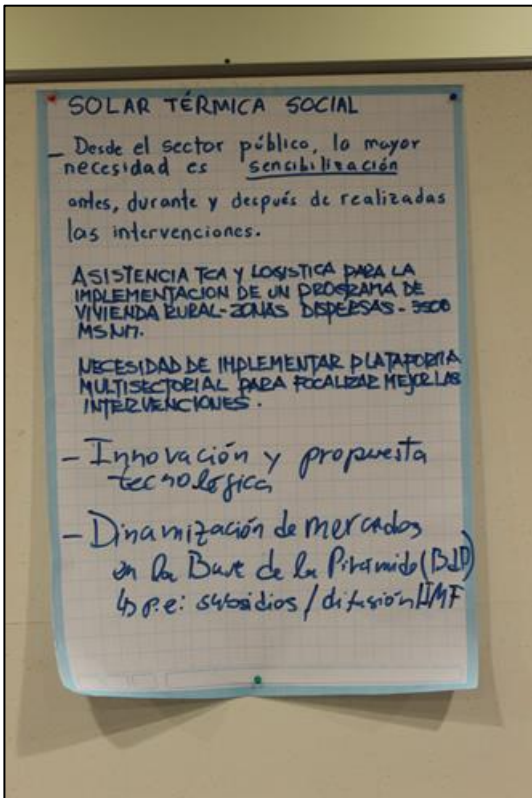 SOLAR TÉRMICA SOCIAL
- Desde el sector público, la mayor
necesidad es sencibilización
antes, durante y después de realizadas
las intervenciones.
ASISTENCIA TCA Y LOGISTICA PARA LA
IMPLEMENTACION DE UN PROGRAMA DE
VIVIENDA RURAL - ZONAS DISPERSAS - 3500
MSNM.
NECESIDAD DE IMPLEMENTAR PLATAFORMA
MULTISECTORIAL PARA FOCALIZAR MEJOR LAS
INTERVENCIONES.
- Innovación y propuesta
tecnológica
- Dinamización de mercados
en la Base de la Pirámide (BdP)
↳ p.e: subsidios / difusión IMF